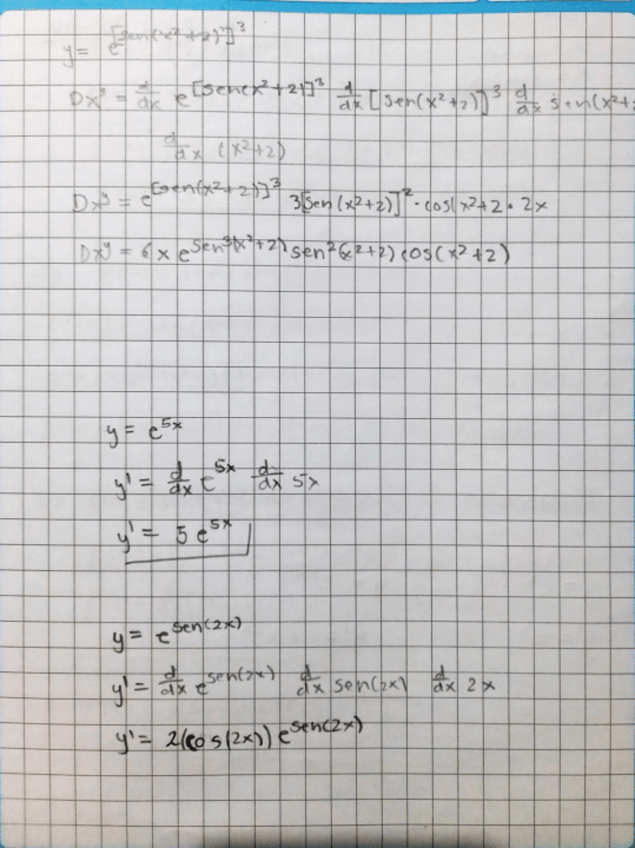 y = e^[sen(x²+2)]³
Dx^y = d/dx e^[sen(x²+2)]³ d/dx [sen(x²+2)]³ d/dx sen(x²+2
d/dx (x²+2)
Dx^y = e^[sen(x²+2)]³ 3[sen(x²+2)]² · cos(x²+2 · 2x
Dx^y = 6x e^sen³(x²+2) sen²(x²+2) cos(x²+2)
y = e^5x
y' = d/dx e^5x d/dx 5x
y' = 5e^5x
y = e^sen(2x)
y' = d/dx e^sen(2x) d/dx sen(2x) d/dx 2x
y' = 2(cos(2x)) e^sen(2x)